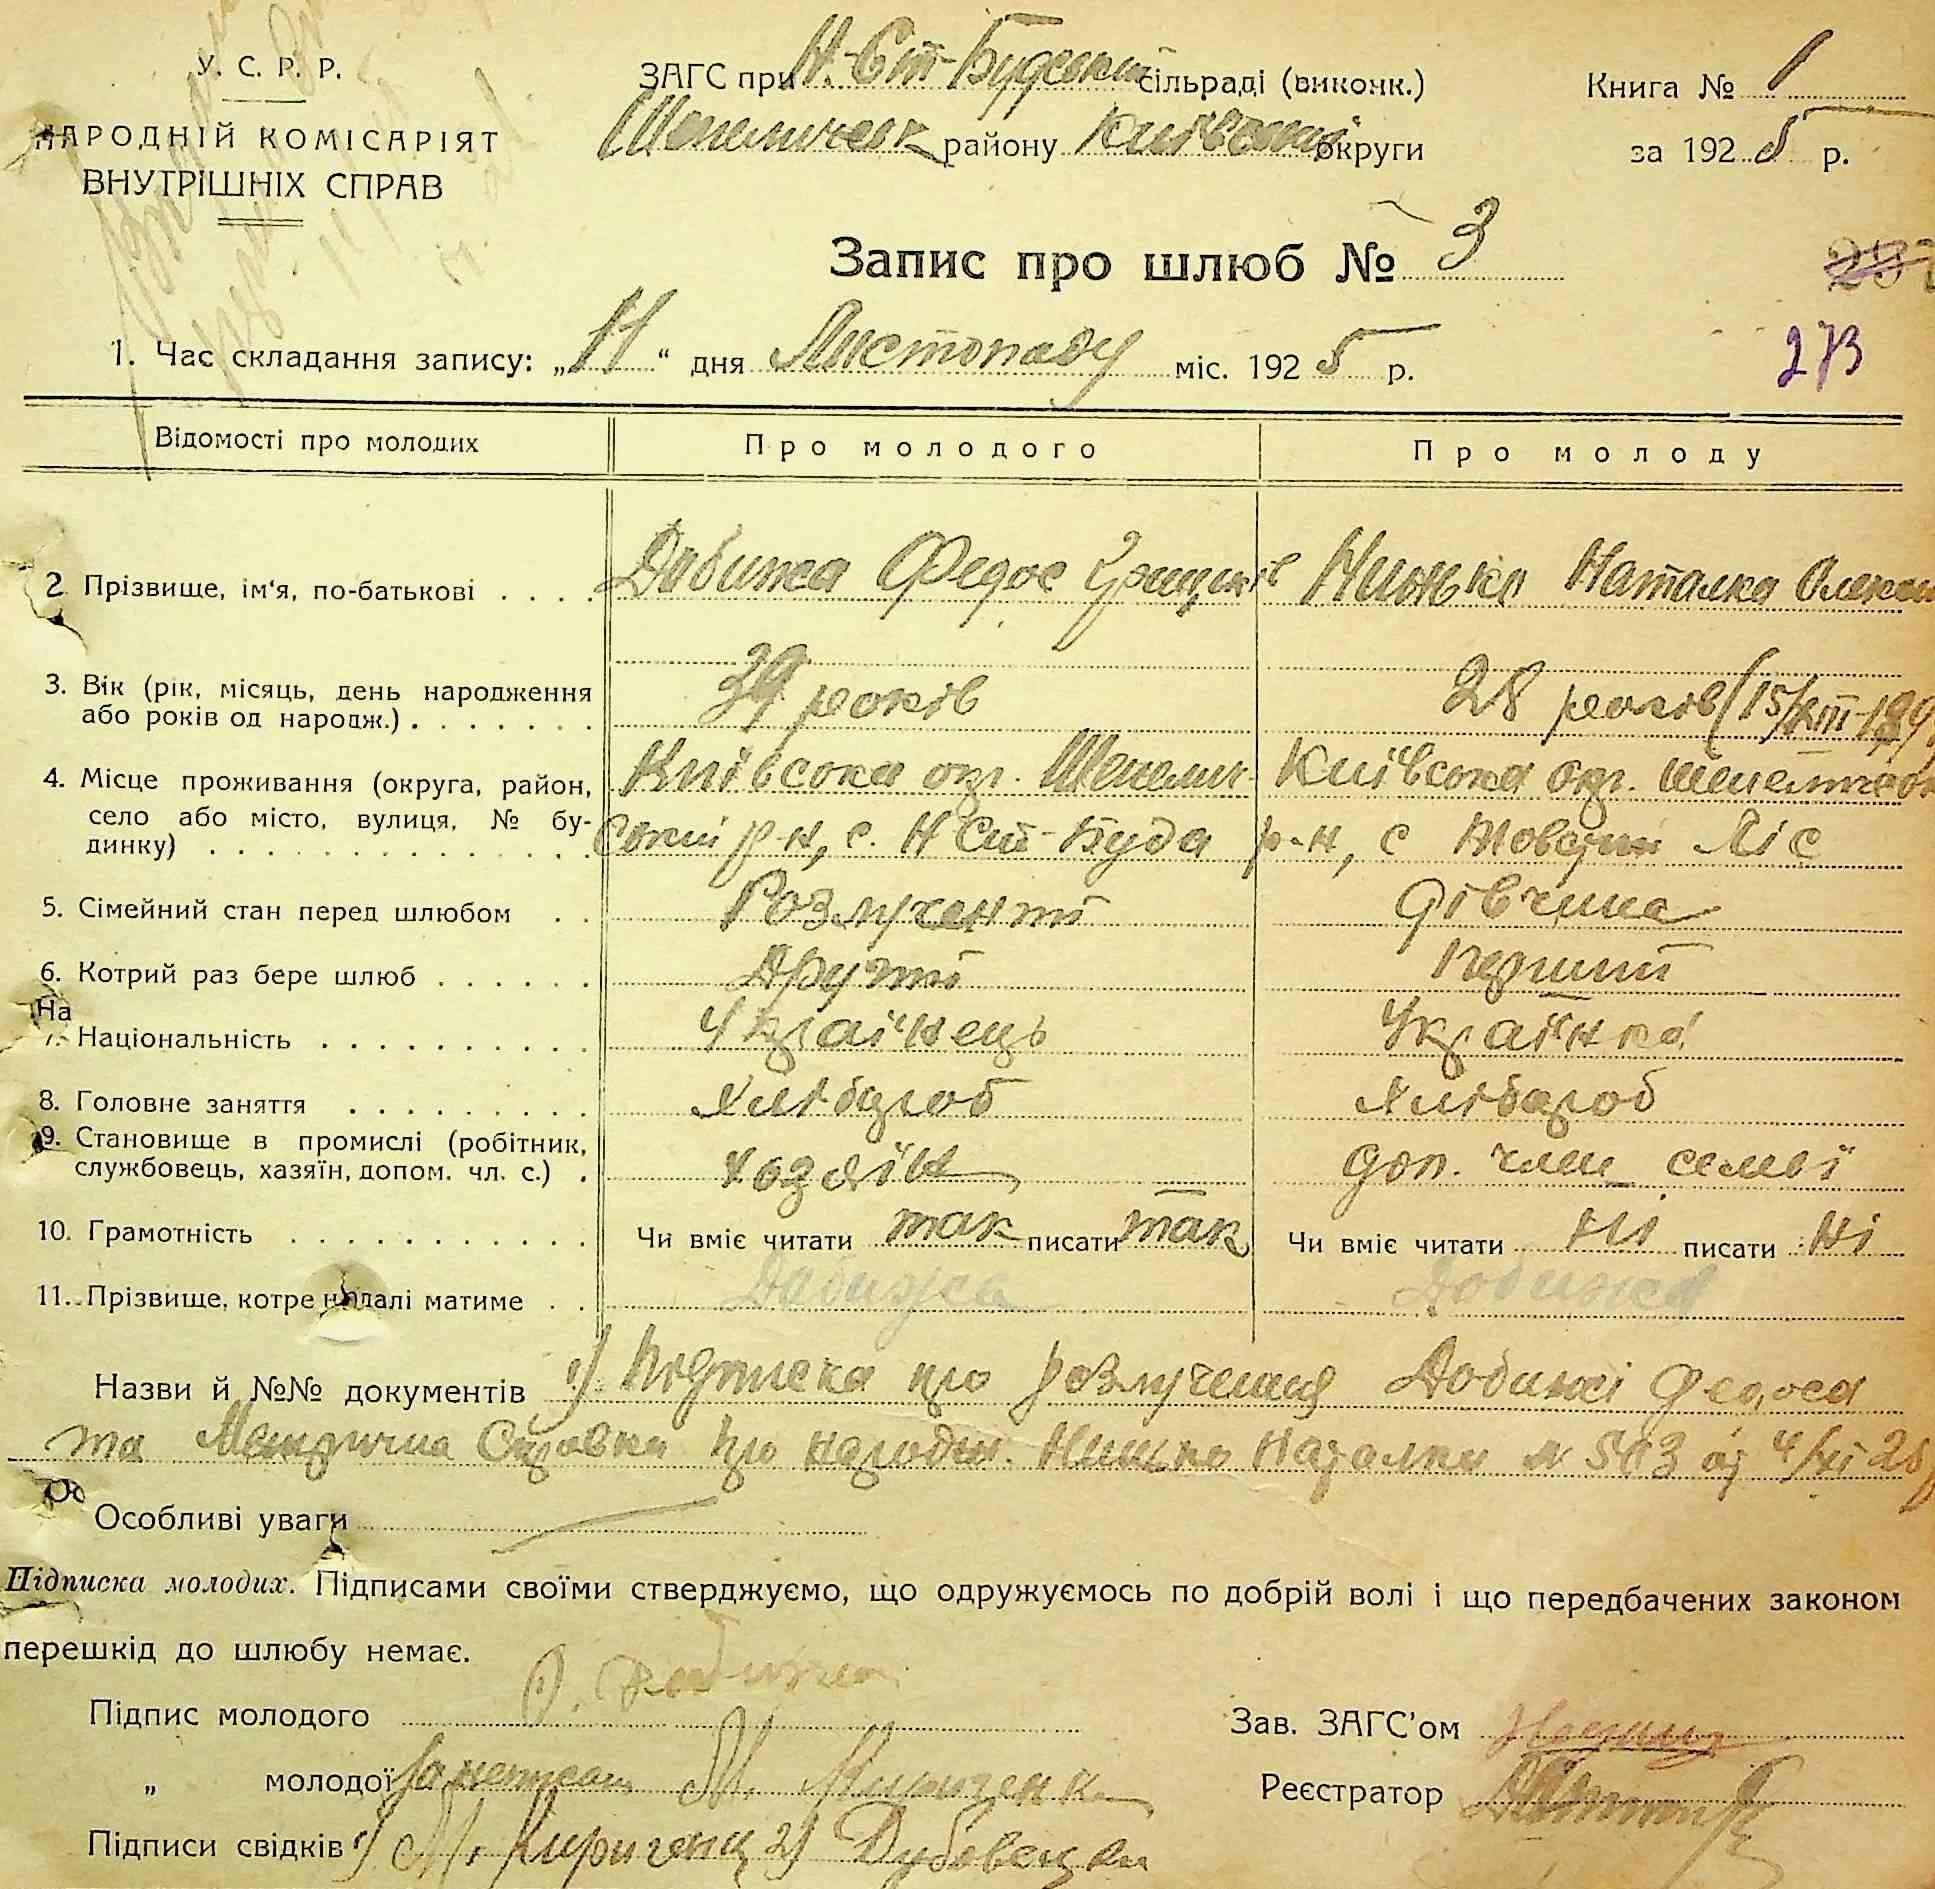 У. С. Р. Р.
НАРОДНІЙ КОМІСАРІЯТ
ВНУТРІШНІХ СПРАВ
ЗАГС при Н-Ст-Будській сільраді (виконк.)
району Київської округи
Книга № 1
за 1925 р.
Запис про шлюб № 3
273
1. Час складання запису: „11“ дня Листопаду міс. 1925 р.
Відомості про молодих Про молодого Про молоду
2. Прізвище, ім'я, по-батькові . . . . Добижа Федос Грицьків Нинько Наталка
3. Вік (рік, місяць, день народження
або років од народж.) . . . . . . . 39 років 28 років
4. Місце проживання (округа, район,
село або місто, вулиця, № бу-
динку) . . . . . . . . . . . . . .
Київська окр. Шепелич-
ський р-н, с. Н Ст-Буда
Київська окр.
р-н, с Товстий Ліс
5. Сімейний стан перед шлюбом . . Розлучений дівчина
6. Котрий раз бере шлюб . . . . . . Другий перший
На
7. Національність . . . . . . . . . . Українець Українка
8. Головне заняття . . . . . . . . . Хлібороб Хлібороб
9. Становище в промислі (робітник,
службовець, хазяїн, допом. чл. с.) . хозяїн доп. член семьї
10. Грамотність . . . . . . . . . . . Чи вміє читати так писати так Чи вміє читати ні писати ні
11. Прізвище, котре надалі матиме . . Добижа Добижа
Назви й №№ документів 1) Підписка про розлучення Добижі Федоса
та Метрична Справка про народж. Нинько Наталки № 503 од
Особливі уваги
Підписка молодих. Підписами своїми стверджуємо, що одружуємось по добрій волі і що передбачених законом
перешкід до шлюбу немає.
Підпис молодого Добижа
„ молодої М. Кириченко
Підписи свідків 1) М. Кириченко 2) Дубовецкий
Зав. ЗАГС'ом
Реєстратор